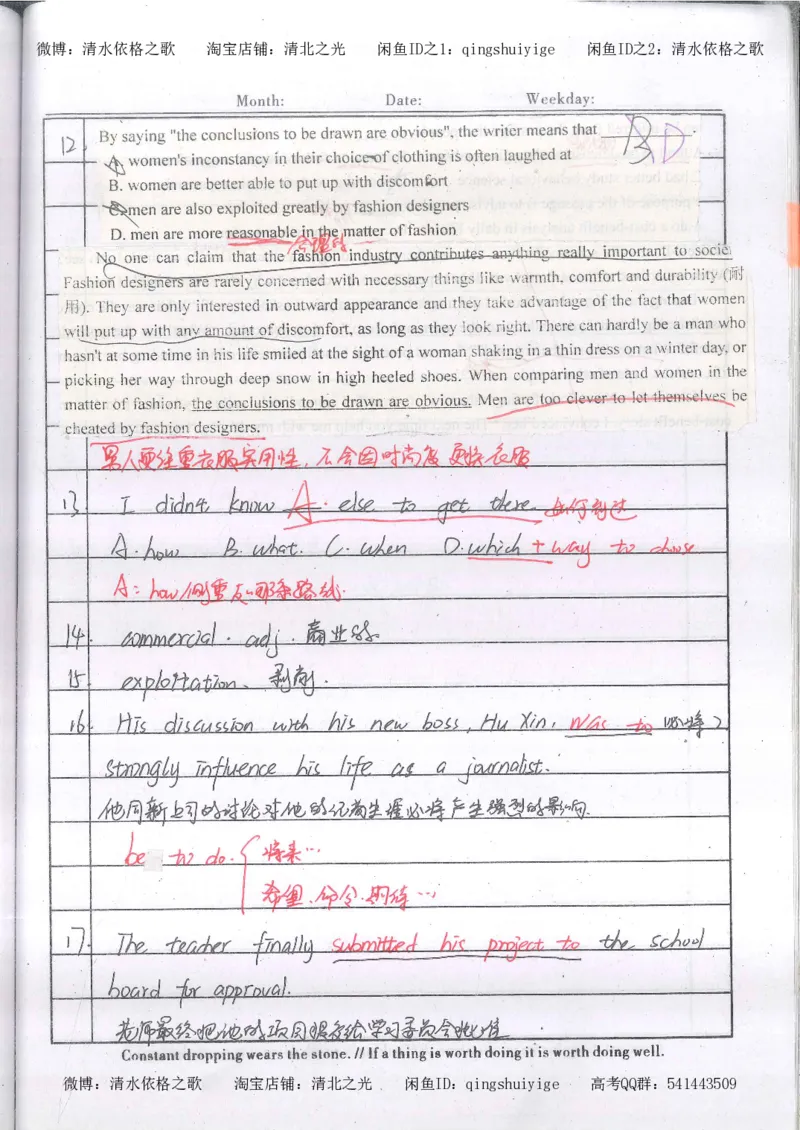 微博：清水依格之歌 淘宝店铺：清北之光 闲鱼ID之1：qingshuiyige 闲鱼ID之2：清水依格之歌
Month: Date: Weekday:
12. By saying "the conclusions to be drawn are obvious", the writer means that ______. B D
A. women's inconstancy in their choice of clothing is often laughed at
B. women are better able to put up with discomfort
C. men are also exploited greatly by fashion designers
D. men are more reasonable in the matter of fashion
合理的
No one can claim that the fashion industry contributes anything really important to socie
Fashion designers are rarely concerned with necessary things like warmth, comfort and durability (耐
用). They are only interested in outward appearance and they take advantage of the fact that women
will put up with any amount of discomfort, as long as they look right. There can hardly be a man who
hasn't at some time in his life smiled at the sight of a woman shaking in a thin dress on a winter day, or
picking her way through deep snow in high heeled shoes. When comparing men and women in the
matter of fashion, the conclusions to be drawn are obvious. Men are too clever to let themselves be
cheated by fashion designers.
男人更注重衣服实用性，不会因时尚而更换衣服
13. I didn't know A. else to get there. 如何到达
A. how B. what. C. when D. which + way to choose
A: how 侧重走哪条路线.
14. commercial. adj. 商业的.
15. exploitation. 剥削.
16. His discussion with his new boss, Hu Xin, was to 必将
strongly influence his life as a journalist.
他同新上司的讨论对他的记者生涯必将产生强烈的影响.
be to do. { 将来…
希望.命令.期待…
17. The teacher finally submitted his project to the school
board for approval.
老师最终把他的项目报告给学习委员会批准
Constant dropping wears the stone. // If a thing is worth doing it is worth doing well.
微博：清水依格之歌 淘宝店铺：清北之光 闲鱼ID：qingshuiyige 高考QQ群：541443509